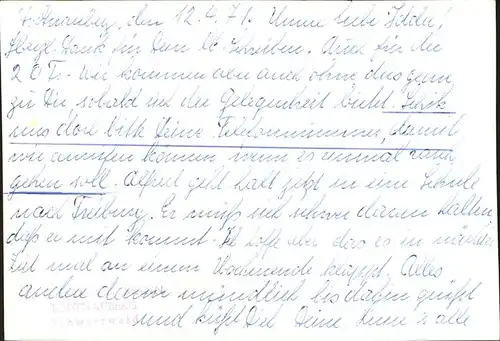 den 12.4.71. Meine liebe
Herzl. Dank für Dein lb. Schreiben. Auch für die
20 Wir kommen aber auch ohne das gern
zu Dir, sobald sich die Gelegenheit bietet. Schick
uns doch bitte Deine Telefonnummer, damit
wir anrufen können, wenn es einmal
gehen soll. Alfred geht halt jetzt in eine Schule
nach Freiburg. Er muß sich schwer daran halten
daß er mit kommt. Ich hoffe aber das es in nächster
Zeit mal an einem Wochenende klappt. Alles
andere dann mündlich bis dahin grüßt
und küßt Dich Deine alle